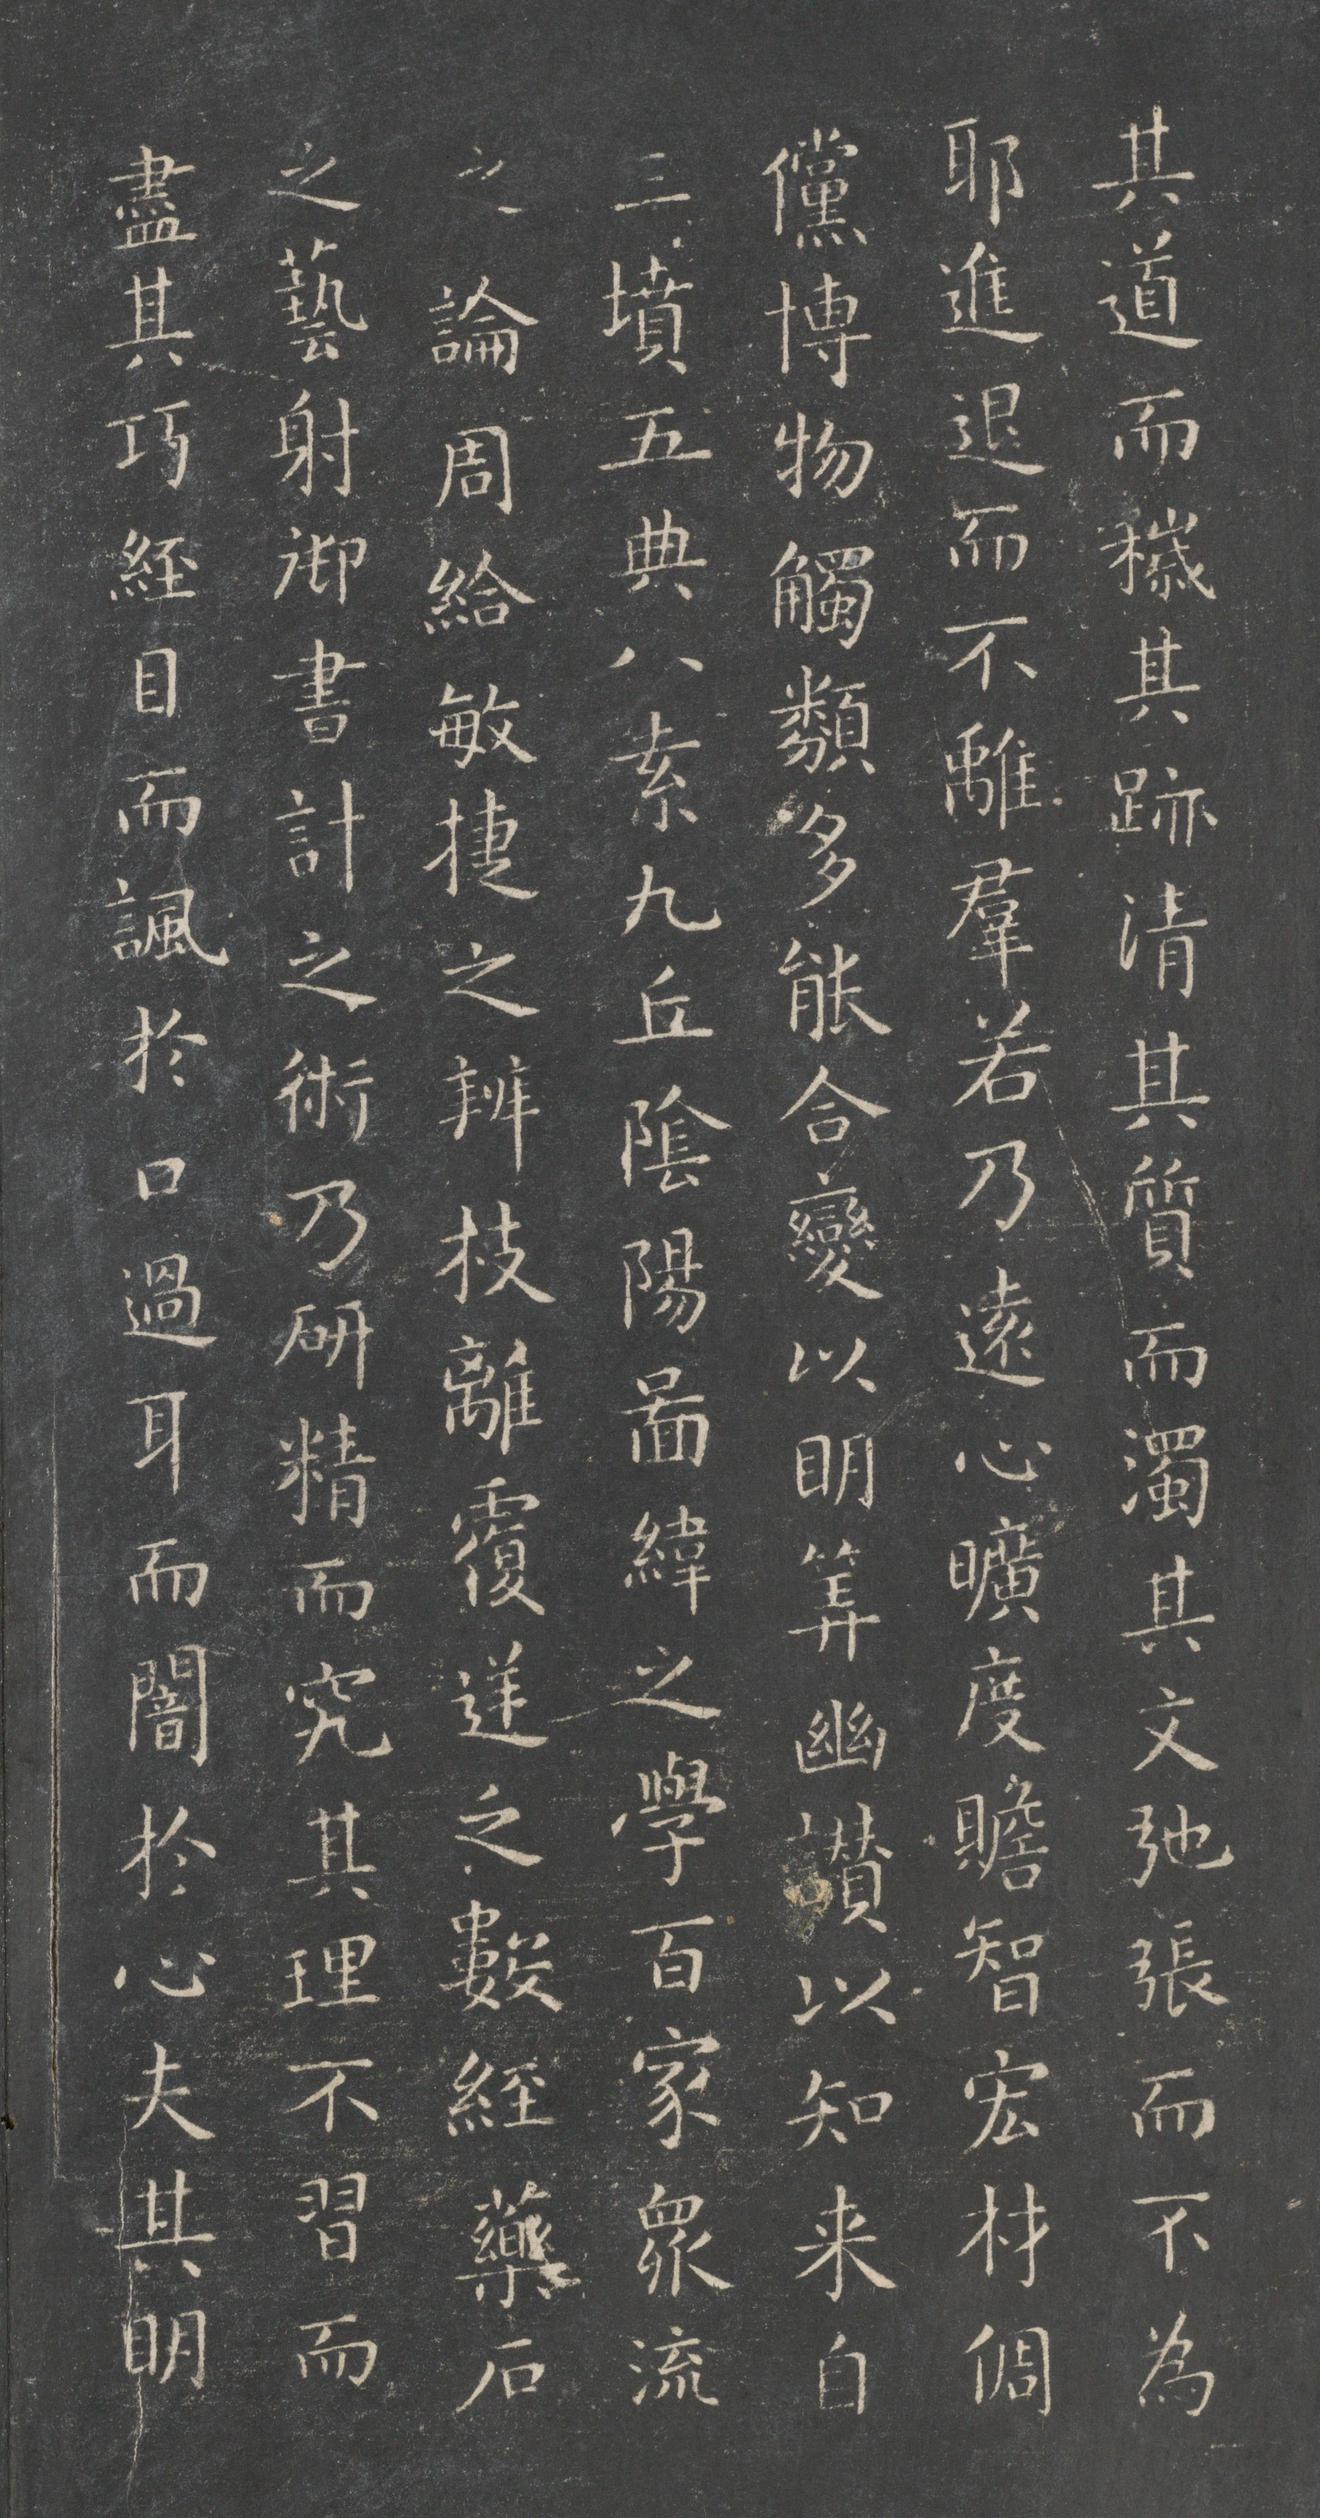 其道而穢其跡清其質而濁其文弛張而不為
耶進退而不離羣若乃遠心曠度贍智宏材倜
儻博物觸類多能合變以明筭幽讃以知来自
三墳五典八索九丘陰陽啚緯之學百家衆流
之論周給敏捷之辨枝離覆逆之數經藥石
之藝射御書計之術乃研精而究其理不習而
盡其巧経目而諷扵口過耳而闇扵心夫其明